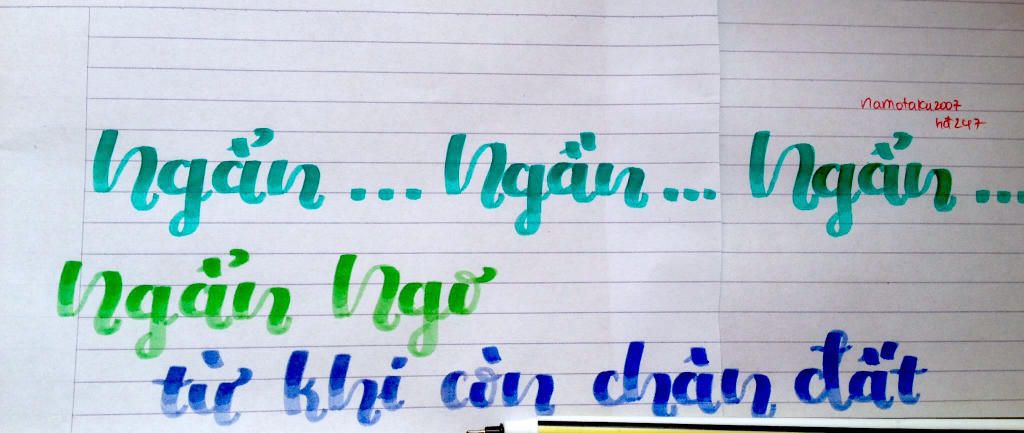 namotaku2007
hđ247
Ngẩn ... Ngẩn ... Ngẩn ...
Ngẩn Ngơ
từ khi còn chân đất